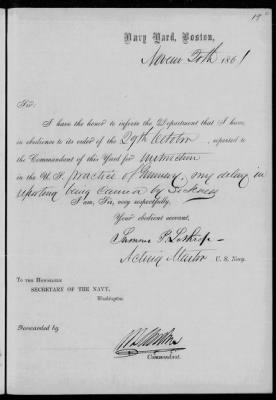 Navy Yard, Boston,
Novem 20th 1861
Sir:
I have the honor to inform the Department that I have,
in obedience to its order of the 29th October, reported to
the Commandant of this Yard for instruction
in the U. S. practice of Gunnery, my delay in
reporting being caused by Sickness
I am, Sir, very respectfully,
Your obedient servant,
P. Lothrop
Acting Master U. S. Navy.
To the Honorable
SECRETARY OF THE NAVY,
Washington.
Forwarded by
Commandant.